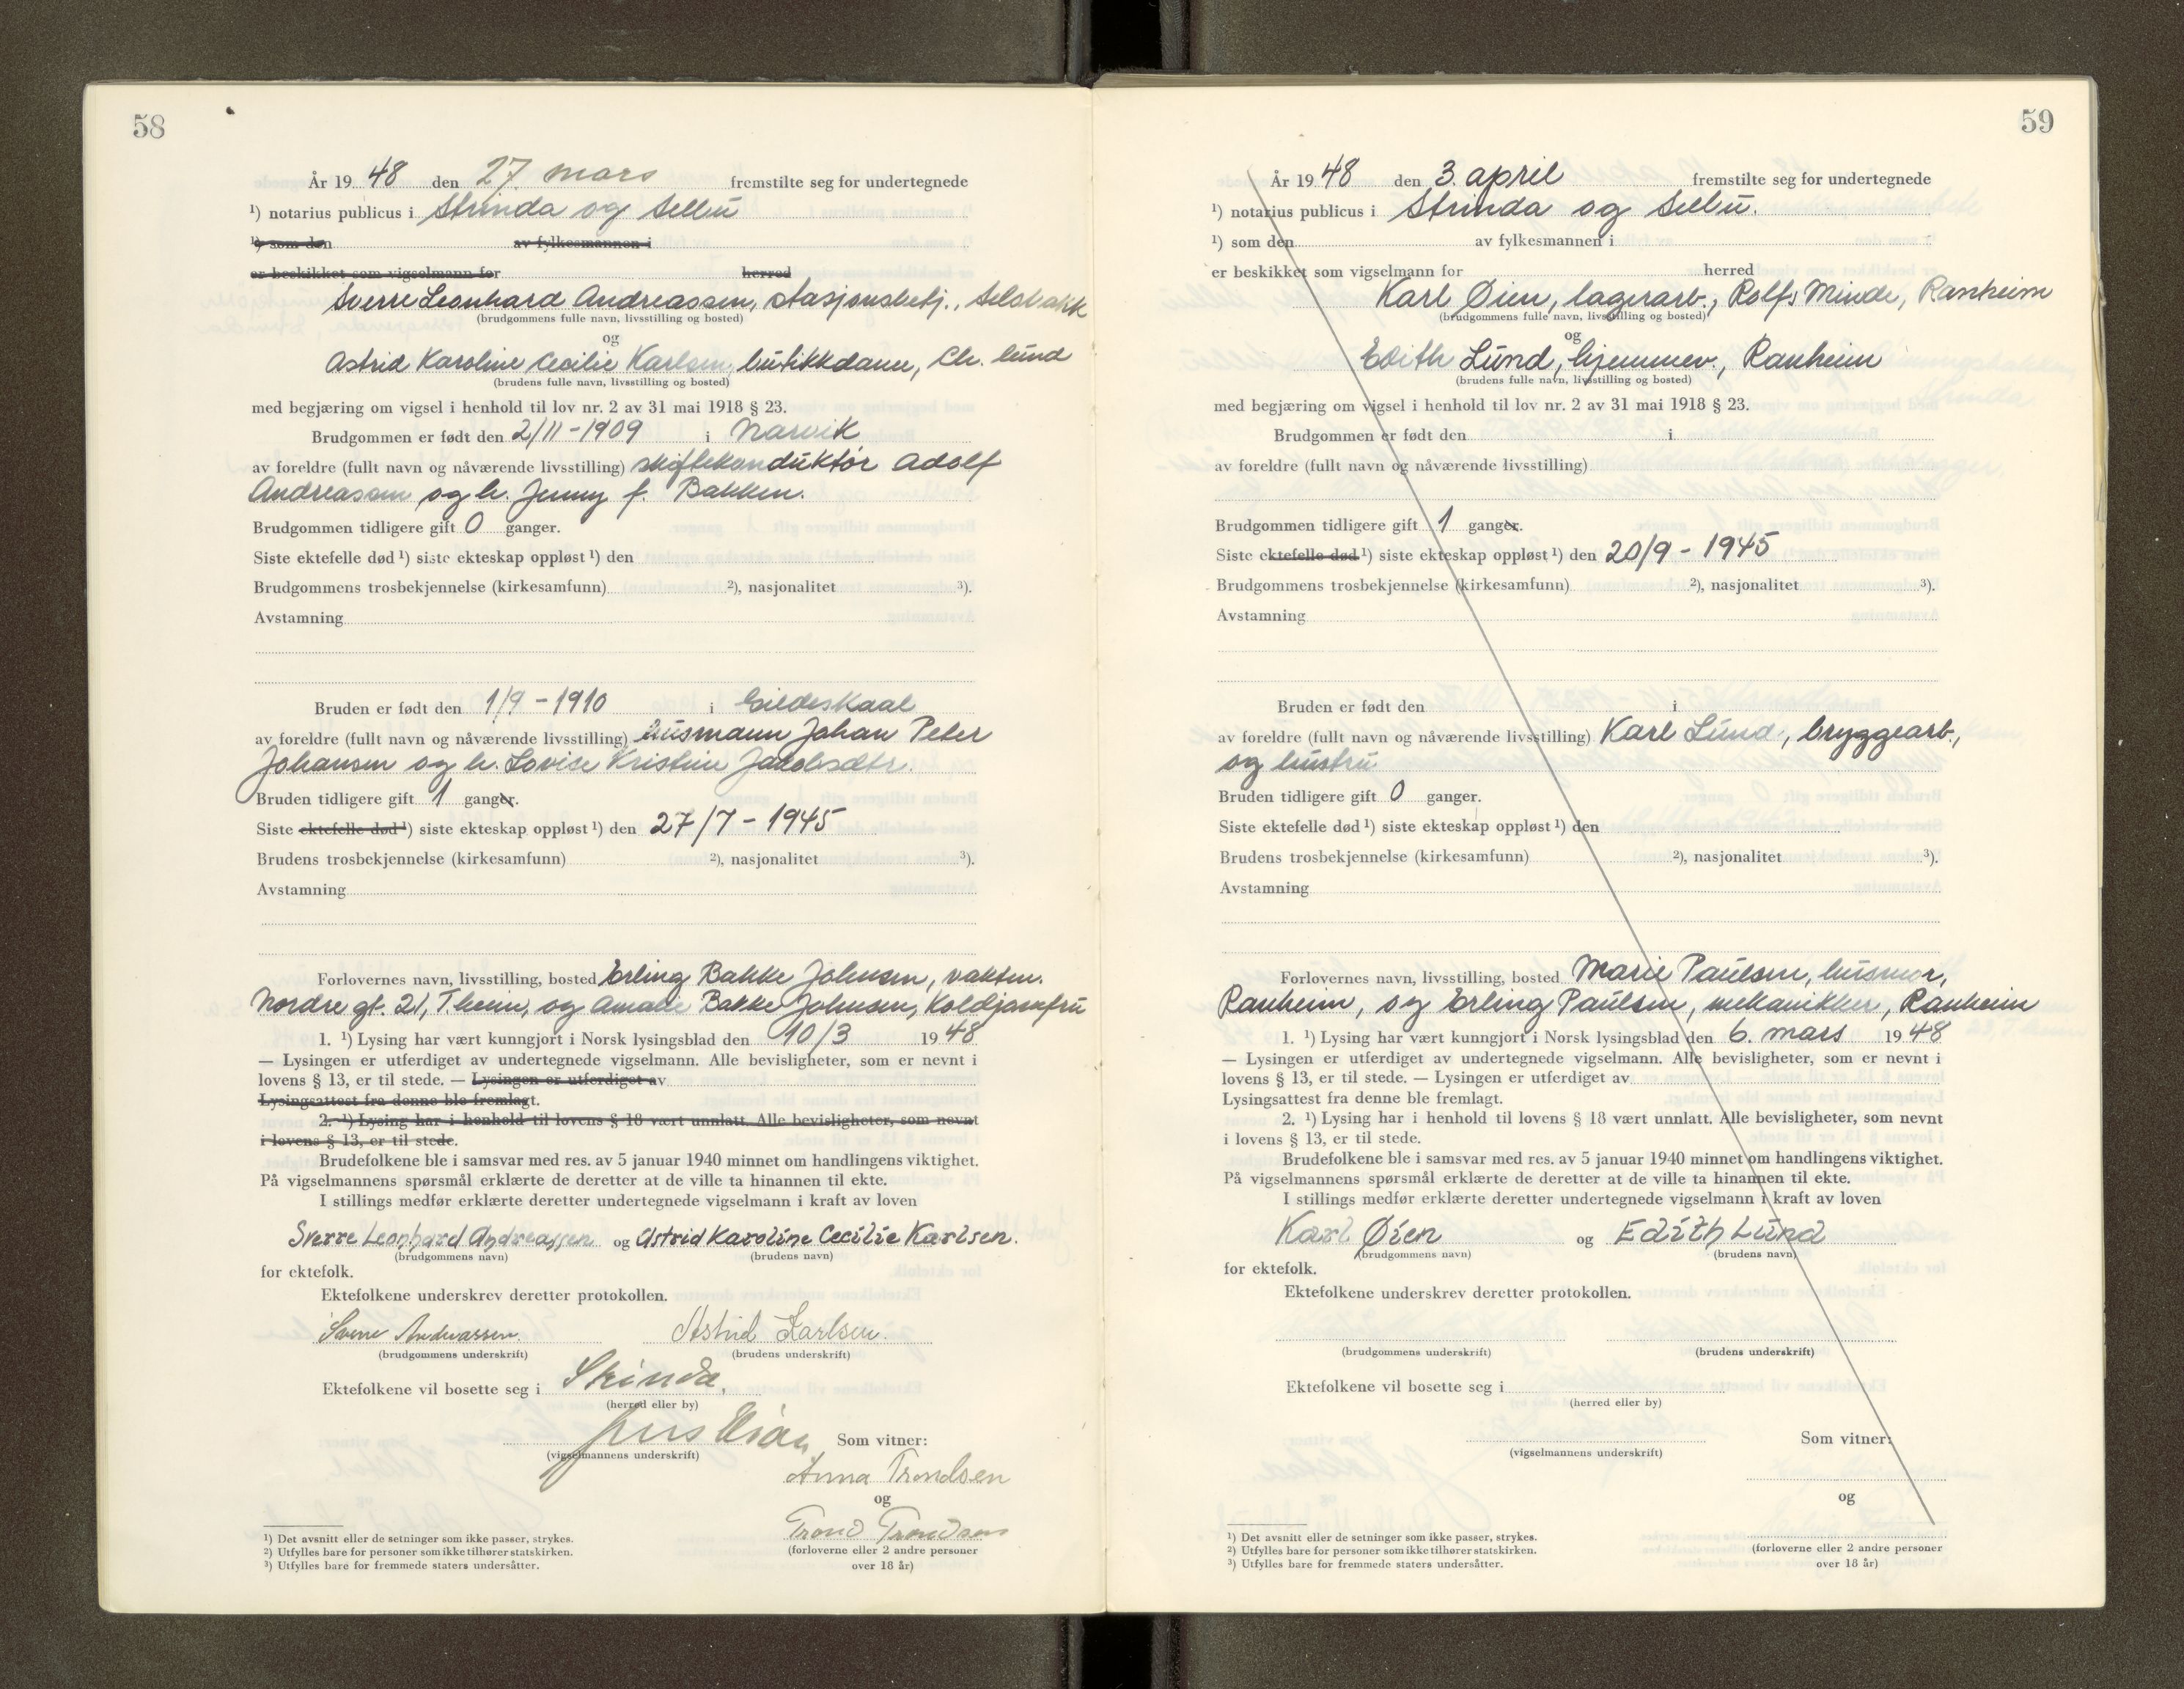 58
År 1948 den 27. mars fremstilte seg for undertegnede
¹) notarius publicus i Strinda og Selbu
¹) som den av fylkesmannen i
er beskikket som vigselmann for herred
Sverre Leonhard Andreassen, stasjonsbetj., Selsbakk
(brudgommens fulle navn, livsstilling og bosted)
og
Astrid Karoline Cecilie Karlsen, butikkdame, Ch. lund
(brudens fulle navn, livsstilling og bosted)
med begjæring om vigsel i henhold til lov nr. 2 av 31 mai 1918 § 23.
Brudgommen er født den 2/11-1909 i Narvik
av foreldre (fullt navn og nåværende livsstilling) skiftekonduktør Adolf
Andreassen og h. Jenny f. Bakken.
Brudgommen tidligere gift 0 ganger.
Siste ektefelle død ¹) siste ekteskap oppløst ¹) den
Brudgommens trosbekjennelse (kirkesamfunn) ²), nasjonalitet ³).
Avstamning
Bruden er født den 1/9-1910 i Gildeskaal
av foreldre (fullt navn og nåværende livsstilling) husmann Johan Peter
Johansen og h. Lovise Kristine Jakobsdtr.
Bruden tidligere gift 1 ganger.
Siste ektefelle død ¹) siste ekteskap oppløst ¹) den 27/7-1945
Brudens trosbekjennelse (kirkesamfunn) ²), nasjonalitet ³).
Avstamning
Forlovernes navn, livsstilling, bosted Erling Bakke Johnsen, vaktm.
Nordre gt. 21, T.heim, og Amalie Bakke Johnsen, Koldjomfru
1. ¹) Lysing har vært kunngjort i Norsk lysingsblad den 10/3 1948
— Lysingen er utferdiget av undertegnede vigselmann. Alle bevisligheter, som er nevnt i
lovens § 13, er til stede. — Lysingen er utferdiget av
Lysingsattest fra denne ble fremlagt.
2. ¹) Lysing har i henhold til lovens § 18 vært unnlatt. Alle bevisligheter, som nevnt
i lovens § 13, er til stede.
Brudefolkene ble i samsvar med res. av 5 januar 1940 minnet om handlingens viktighet.
På vigselmannens spørsmål erklærte de deretter at de ville ta hinannen til ekte.
I stillings medfør erklærte deretter undertegnede vigselmann i kraft av loven
Sverre Leonhard Andreassen og Astrid Karoline Cecilie Karlsen.
(brudgommens navn) (brudens navn)
for ektefolk.
Ektefolkene underskrev deretter protokollen.
Sverre Andreassen. Astrid Karlsen.
(brudgommens underskrift) (brudens underskrift)
Ektefolkene vil bosette seg i Strinda.
(herred eller by)
Som vitner:
(vigselmannens underskrift)
Anna Trondsen
og
Trond Trondsen
(forloverne eller 2 andre personer
over 18 år)
¹) Det avsnitt eller de setninger som ikke passer, strykes.
²) Utfylles bare for personer som ikke tilhører statskirken.
³) Utfylles bare for fremmede staters undersåtter.
59
År 1948 den 3. april fremstilte seg for undertegnede
¹) notarius publicus i Strinda og Selbu.
¹) som den av fylkesmannen i
er beskikket som vigselmann for herred
Karl Øien, lagerarb., Rolfs Minde, Ranheim
(brudgommens fulle navn, livsstilling og bosted)
og
Edith Lund, hjemmev., Ranheim
(brudens fulle navn, livsstilling og bosted)
med begjæring om vigsel i henhold til lov nr. 2 av 31 mai 1918 § 23.
Brudgommen er født den i
av foreldre (fullt navn og nåværende livsstilling)
Brudgommen tidligere gift 1 ganger.
Siste ektefelle død ¹) siste ekteskap oppløst ¹) den 20/9-1945
Brudgommens trosbekjennelse (kirkesamfunn) ²), nasjonalitet ³).
Avstamning
Bruden er født den i
av foreldre (fullt navn og nåværende livsstilling) Karl Lund, bryggearb.,
og hustru
Bruden tidligere gift 0 ganger.
Siste ektefelle død ¹) siste ekteskap oppløst ¹) den
Brudens trosbekjennelse (kirkesamfunn) ²), nasjonalitet ³).
Avstamning
Forlovernes navn, livsstilling, bosted Marie Paulsen, husmor,
Ranheim, og Erling Paulsen, mekanikker, Ranheim
1. ¹) Lysing har vært kunngjort i Norsk lysingsblad den 6. mars 1948
— Lysingen er utferdiget av undertegnede vigselmann. Alle bevisligheter, som er nevnt i
lovens § 13, er til stede. — Lysingen er utferdiget av
Lysingsattest fra denne ble fremlagt.
2. ¹) Lysing har i henhold til lovens § 18 vært unnlatt. Alle bevisligheter, som nevnt
i lovens § 13, er til stede.
Brudefolkene ble i samsvar med res. av 5 januar 1940 minnet om handlingens viktighet.
På vigselmannens spørsmål erklærte de deretter at de ville ta hinannen til ekte.
I stillings medfør erklærte deretter undertegnede vigselmann i kraft av loven
Karl Øien og Edith Lund
(brudgommens navn) (brudens navn)
for ektefolk.
Ektefolkene underskrev deretter protokollen.
(brudgommens underskrift) (brudens underskrift)
Ektefolkene vil bosette seg i
(herred eller by)
Som vitner:
(vigselmannens underskrift)
og
(forloverne eller 2 andre personer
over 18 år)
¹) Det avsnitt eller de setninger som ikke passer, strykes.
²) Utfylles bare for personer som ikke tilhører statskirken.
³) Utfylles bare for fremmede staters undersåtter.